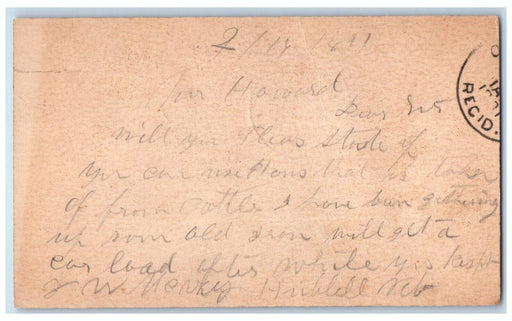 2/18 1891
Howard
Dear Sir
will you Pleas State if
yr can use Hons that is taken
of from Cattle I have been gethering
up som old Iron will get a
car load after while yrs Respt
J W Henky Hubbell Neb
REC'D.